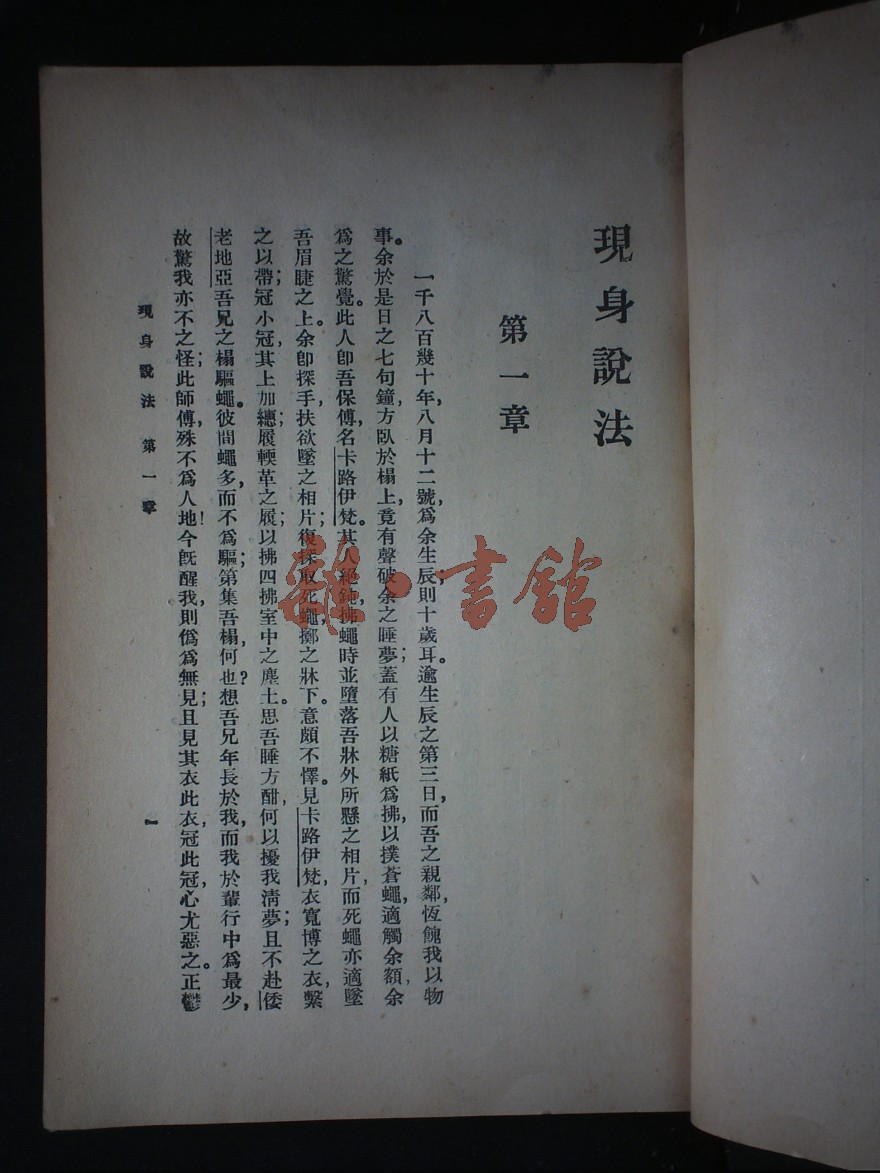 現身說法
第一章
一千八百幾十年八月十二號,爲余生辰;則十歲耳。逾生辰之第三日,而吾之親鄰,恆餽我以物
事。余於是日之七句鐘,方臥於榻上,竟有聲破余之睡夢;蓋有人以糖紙爲拂,以撲蒼蠅,適觸余額,余
爲之驚覺。此人即吾保傅,名卡路伊梵。其人絕鈍,拂蠅時並墮落吾牀外所懸之相片,而死蠅亦適墜
吾眉睫之上。余即探手,扶欲墜之相片;復探取死蠅,擲之牀下。意頗不懌。見卡路伊梵,衣寬博之衣,繫
之以帶;冠小冠,其上加纓;履輭革之履;以拂四拂室中之塵土。思吾睡方酣,何以擾我清夢;且不赴倭
老地亞吾兄之榻驅蠅。彼間蠅多而不爲驅;第集吾榻,何也?想吾兄年長於我,而我於輩行中爲最少,
故驚我亦不之怪;此師傅,殊不爲人地!今既醒我,則僞爲無見;且見其衣此衣,冠此冠,心尤惡之。正鬱
現身說法 第一章
一
雜·書館